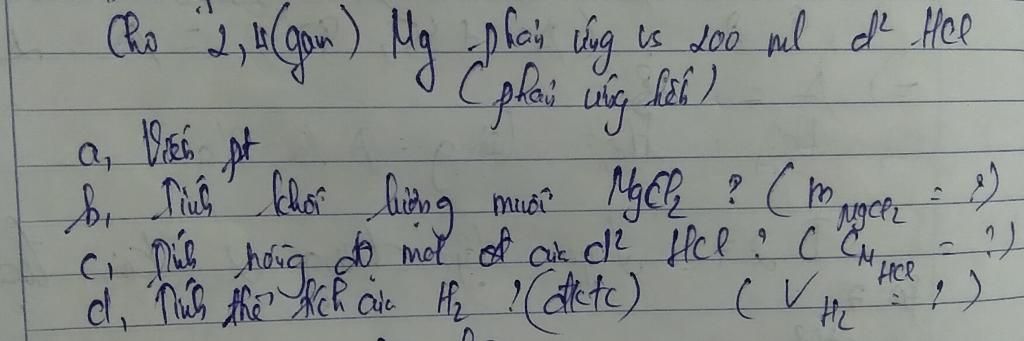 Cho 2,4(gam) Mg phản ứng vs 200 ml d² HCl
(phản ứng hết)
a, Viết pt
b, Tính khối lượng muối MgCl₂ ? ( m MgCl₂ = ? )
c, Tính nồng độ mol của d² HCl ? ( C_M HCl = ? )
d, Tính thể tích của H₂ ? (đktc) ( V H₂ = ? )